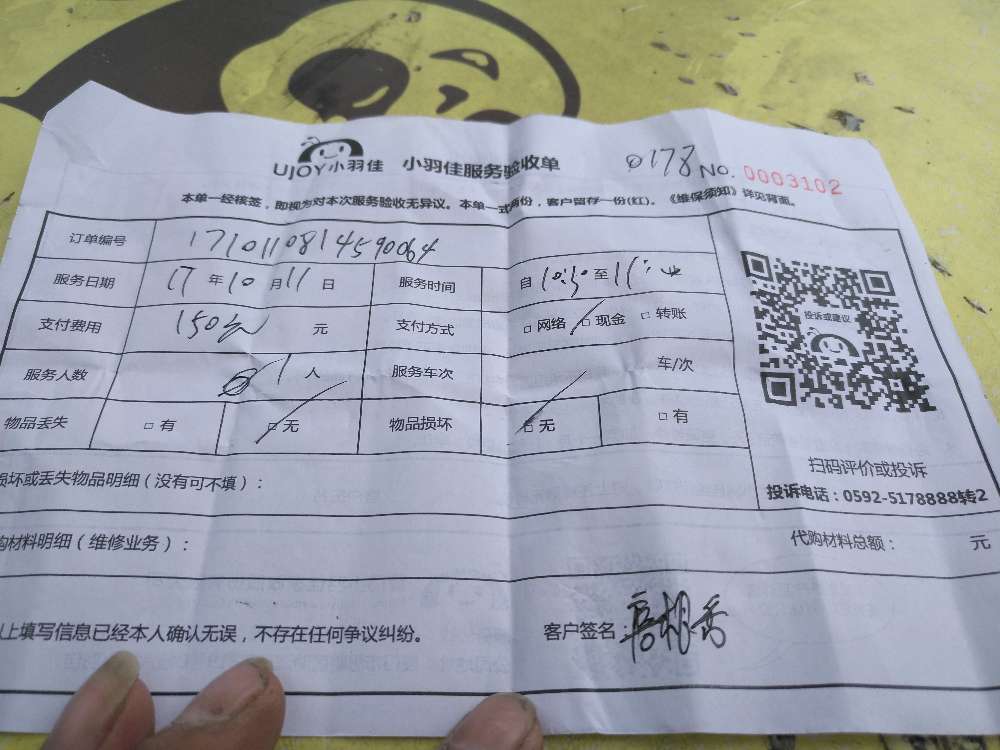 UJOY小羽佳 小羽佳服务验收单 0178 No. 0003102
本单一经核签，即视为对本次服务验收无异议。本单一式两份，客户留存一份(红)。《维保须知》详见背面。
订单编号 171011081459064
服务日期 17年10月11日 服务时间 自10:30至11:
支付费用 150元 元 支付方式 □网络 □现金 □转账
服务人数 1人 服务车次 车/次
物品丢失 □有 □无 物品损坏 □无 □有
投诉或建议
扫码评价或投诉
投诉电话：0592-5178888转2
损坏或丢失物品明细（没有可不填）：
购材料明细（维修业务）： 代购材料总额： 元
以上填写信息已经本人确认无误，不存在任何争议纠纷。 客户签名：